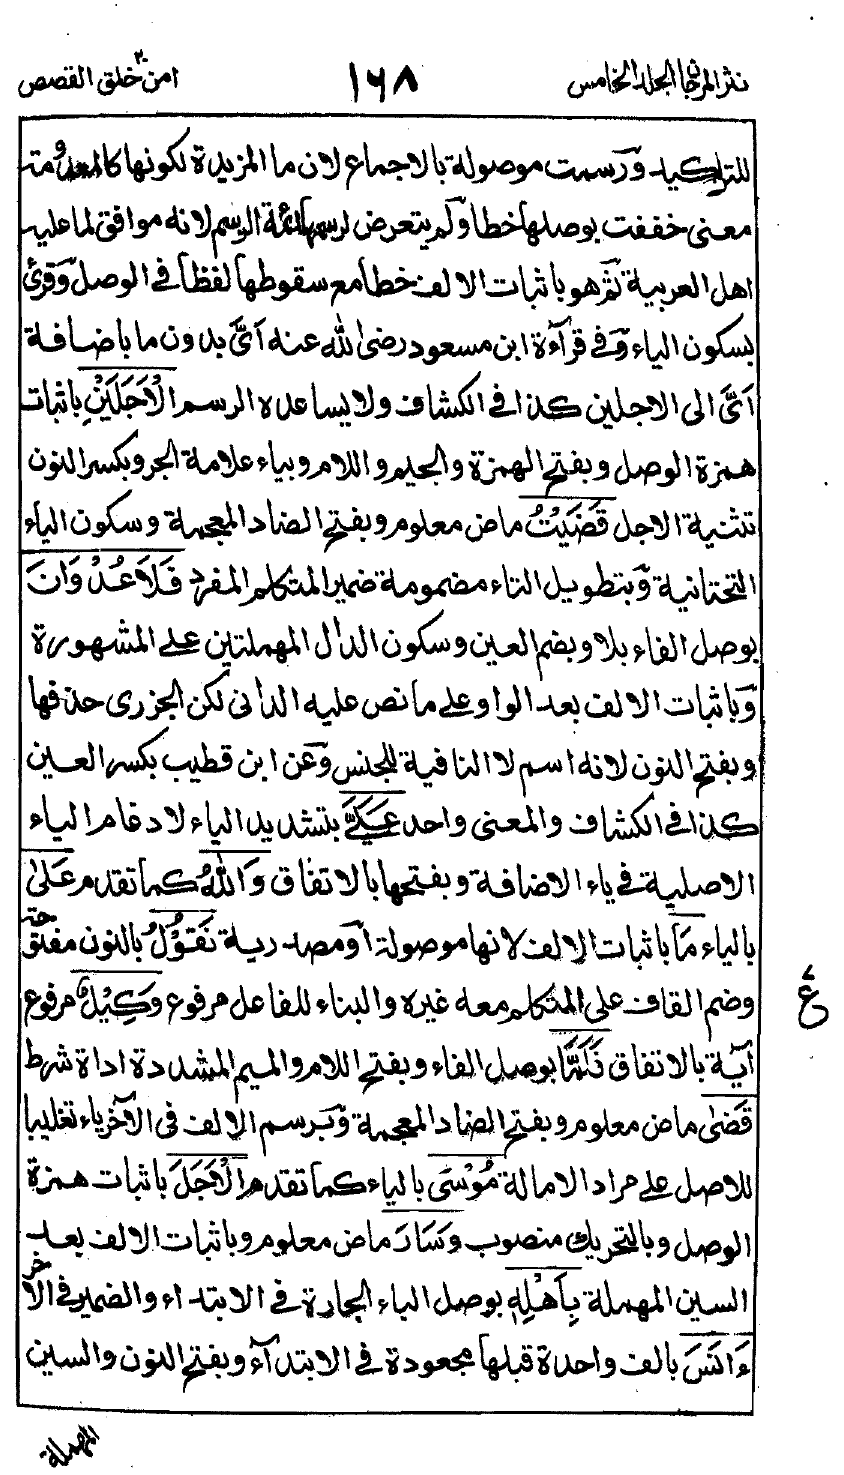 نثر المرجان الجلد الخامس
١٦٨
امن خلق ٢٠ القصص
للتاكيد ورسمت موصولة بالاجماع لان ما المزيدة لكونها كالمعدومة
معنى خففت بوصلها خطا ولم يتعرض لرسمها ائمة الرسم لانه موافق لما عليه
اهل العربية ثم هو باثبات الالف خطا مع سقوطها لفظا في الوصل وقرئ
بسكون الياء وفي قرآءة ابن مسعود رضى الله عنه اَىَّ بدون ما باضافة
اَىَّ الى الاجلين كذا في الكشاف ولا يساعده الرسم الْاَجَلَيْنِ باثبات
همزة الوصل وبفتح الهمزة والجيم واللام وبياء علامة الجر وبكسر النون
تثنية الاجل قَضَيْتُ ماض معلوم وبفتح الضاد المعجمة وسكون الياء
التحتانية وبتطويل التاء مضمومة ضمير المتكلم المفرد فَلَا عُدْوَانَ
بوصل الفاء بلا وبضم العين وسكون الدال المهملتين على المشهورة
وباثبات الالف بعد الواو على ما نص عليه الدانى لكن الجزرى حذفها
وبفتح النون لانه اسم لا النافية للجنس وعن ابن قطيب بكسر العين
كذا في الكشاف والمعنى واحد عَلَيَّ بتشديد الياء لادغام الياء
الاصلية في ياء الاضافة وبفتحها بالاتفاق وَاللهُ كما تقدم عَلَىٰ
بالياء مَا باثبات الالف لانها موصولة او مصدرية نَقُوْلُ بالنون مفتوحة
وضم القاف على المتكلم معه غيره والبناء للفاعل مرفوع وَكِيْلٌ مرفوع
آية بالاتفاق فَلَمَّا بوصل الفاء وبفتح اللام والميم المشددة اداة شرط
قَضٰى ماض معلوم وبفتح الضاد المعجمة وبرسم الالف في الآخر ياء تغليبا
للاصل على مراد الامالة مُوْسَى بالياء كما تقدم الْاَجَلَ باثبات همزة
الوصل وبالتحريك منصوب وَسَارَ ماض معلوم وباثبات الالف بعد
السين المهملة بِاَهْلِهٖ بوصل الباء الجارة في الابتداء والضمير في الآخر
ءَانَسَ بالف واحدة قبلها مجعودة في الابتدآء وبفتح النون والسين
ع
المهملة